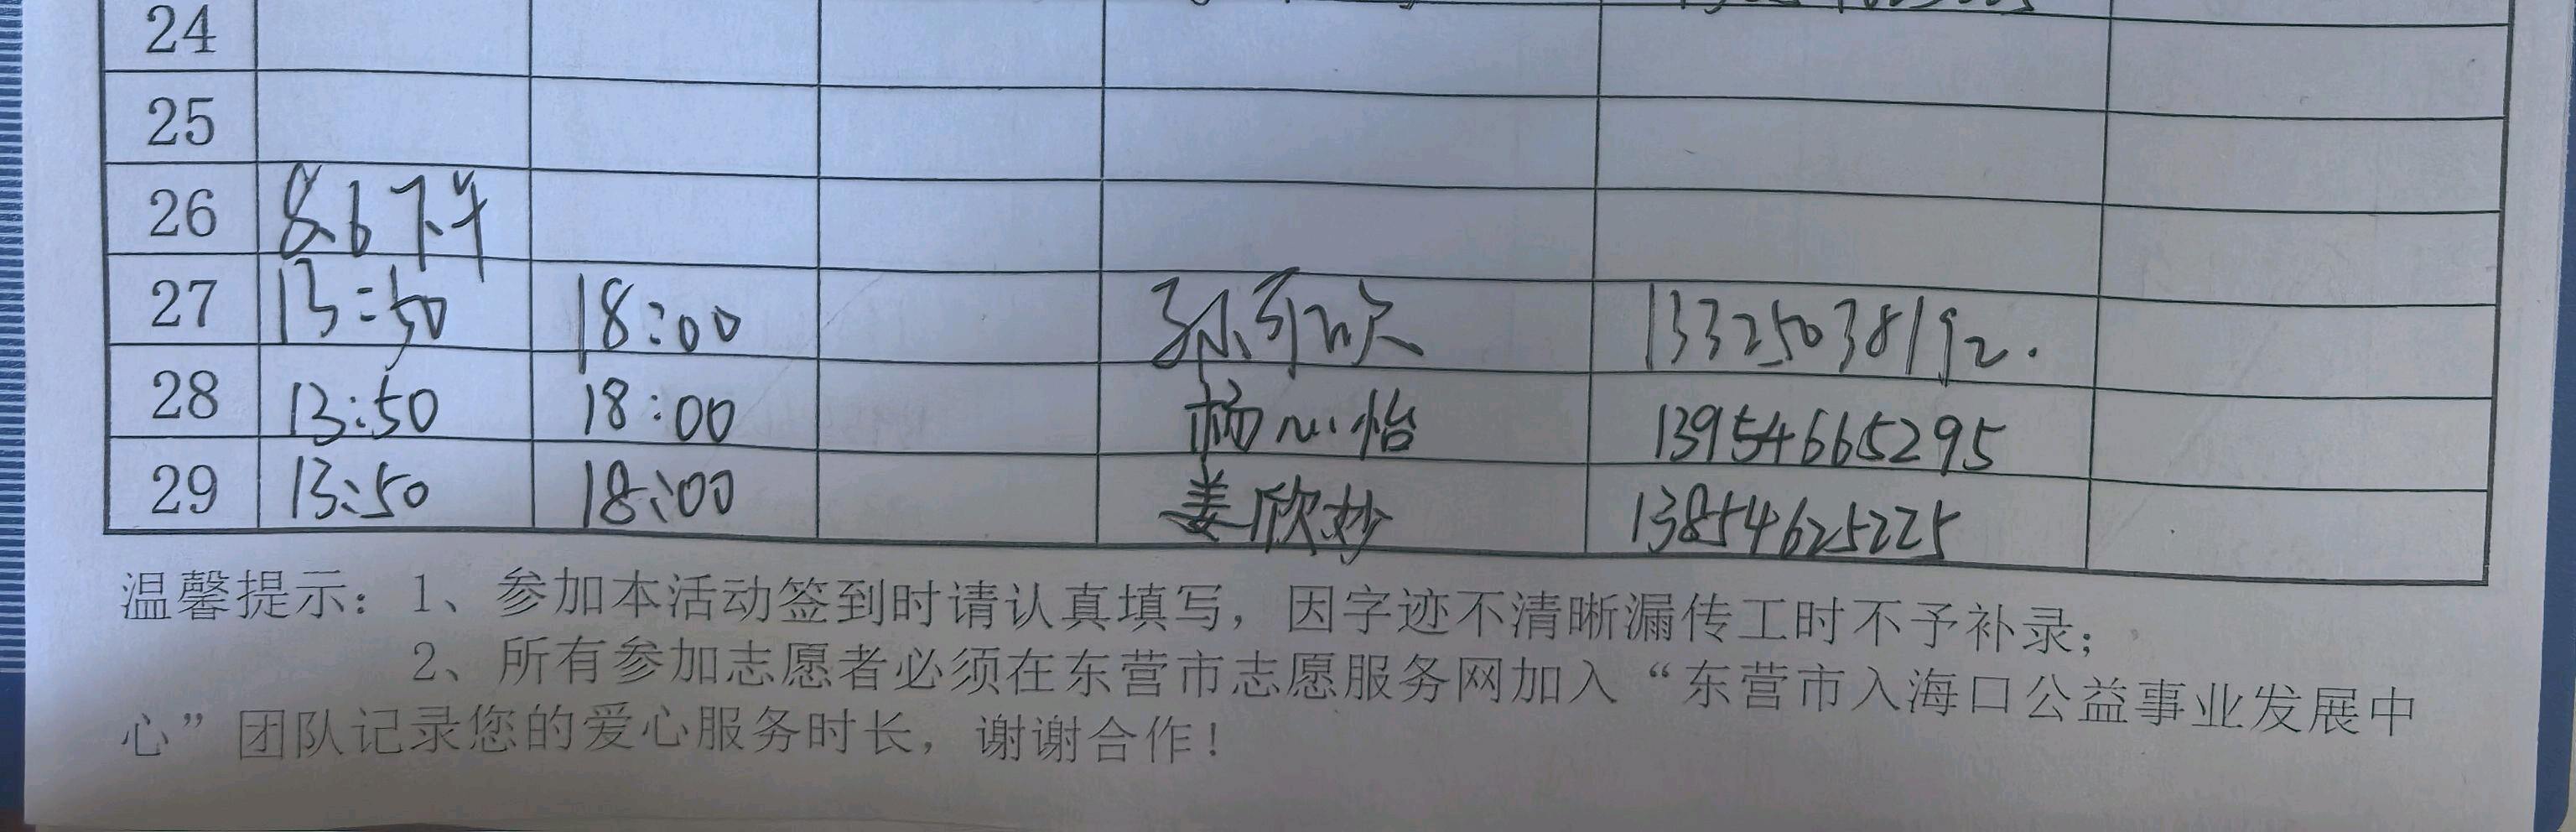 24
25
26 8.6 下午
27 13:50 18:00 孙可欣 13325038192.
28 13:50 18:00 杨心怡 13954665295
29 13:50 18:00 姜欣妙 13854625225
温馨提示：1、参加本活动签到时请认真填写，因字迹不清晰漏传工时不予补录；
2、所有参加志愿者必须在东营市志愿服务网加入“东营市入海口公益事业发展中
心”团队记录您的爱心服务时长，谢谢合作！